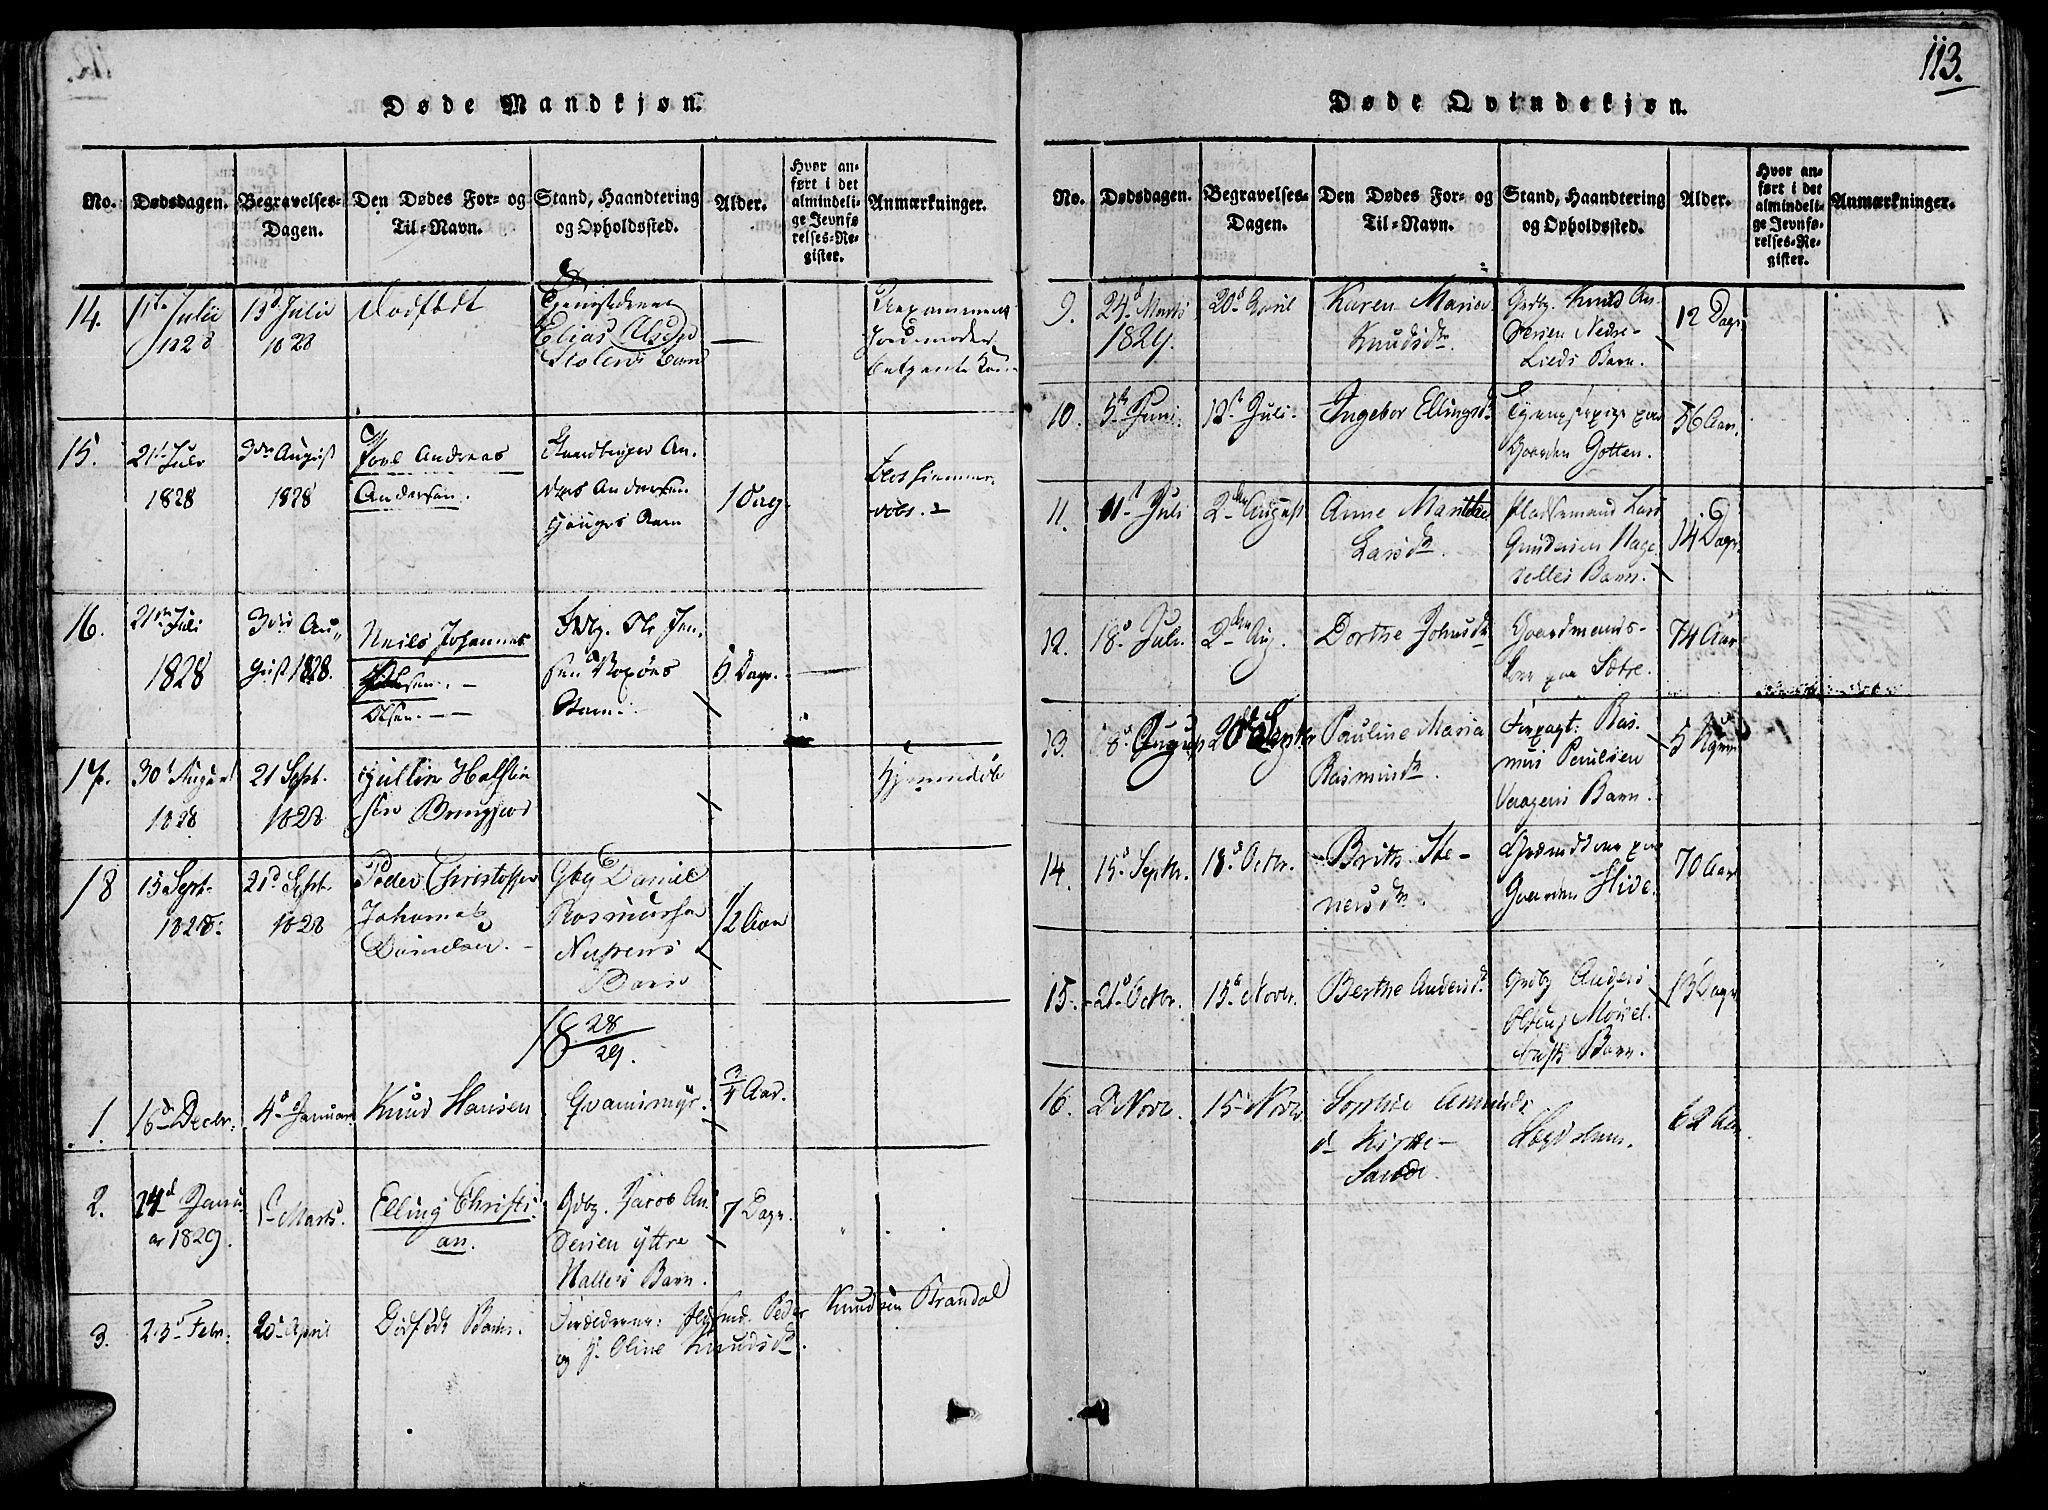 113.
Døde Mandkjøn.
No.
Dødsdagen.
Begravelses-
Dagen.
Den Dødes For- og
Til-Navn.
Stand, Haandtering
og Opholdssted.
Alder.
Hvor an-
ført i det
almindeli-
ge Jevnfø-
relses-Re-
gister.
Anmærkninger.
14.
Julii
1828
13d Julii
1828
Dødfødt
Elias
Stolens Barn
Jordemoder
15.
21 Juli
1828
3die August
1828
Poul Andreas
Andersen.
An-
ders Andersen
Barn
1 Dag.
16.
21de Juli
1828
3die Au-
gust 1828.
Neils Johannes
Olsen.
Ole Jen-
sen
Barn.
5 Dage.
17.
30 August
1828
21 Sept.
1828
Hjemmedøbt
18
15 Sept.
1828.
21d Sept.
1828
Peder Christoffer
Johannes
Danielsen.
Gbr Daniel
Rasmussen
Barn
1/2 Aar
1828/29.
1.
16d Decbr.
4d Januar
Knud Hansen
Qvamsmyr.
3/4 Aar.
2.
24d Janu-
ar 1829.
1 Marts.
Elling Christi-
an.
Gdbr. Jacob An-
dersen Yttre
Barn.
7 Dage.
3.
23d Febr.
20d April
Dødfødt Barn.
Forældrene: Peder Knudsen Brandal
og P. Oline Knudsdr.
Døde Qvindekjøn.
No.
Dødsdagen.
Begravelses-
Dagen.
Den Dødes For- og
Til-Navn.
Stand, Haandtering
og Opholdssted.
Alder.
Hvor an-
ført i det
almindeli-
ge Jevnfø-
relses-Re-
gister.
Anmærkninger.
9.
24d Marts
1829.
20d April
Karen Maria
Knudsdr.
Gdbr. Knud An-
dersen Nedre-
Lieds Barn.
12 Dage
10.
5te Juni.
12te Juli.
Ingebor Ellingsdr.
paa
Gaarden Gotten.
56 Aar.
11.
11 Juli
2den August
Anne Marthe
Larsdr.
Pladsemand Lars
Gundersen Hage-
selles Barn.
14 Dage.
12.
18d Juli.
2den Aug.
Dorthe Johnsdr.
Gaardmands-
kone paa Sætre.
74 Aar
13.
18d August
20d Septbr
Pauline Maria
Rasmusdr.
Forpagt. Ras-
mus Poulsen
Vaagens Barn.
5
14.
15d Septbr.
18d Octbr.
Brithe Ste-
nersdr.
paa
Gaarden Hide.
70 Aar
15.
21d Octbr.
15d Novbr.
Berthe Andersdr.
Gdbr Anders
Olsen
Barn.
13 Dage
16.
2d Novbr.
15d Novbr
Sophie Amunds-
dr Kirke-
Sande.
Lægdslem.
62 Aar